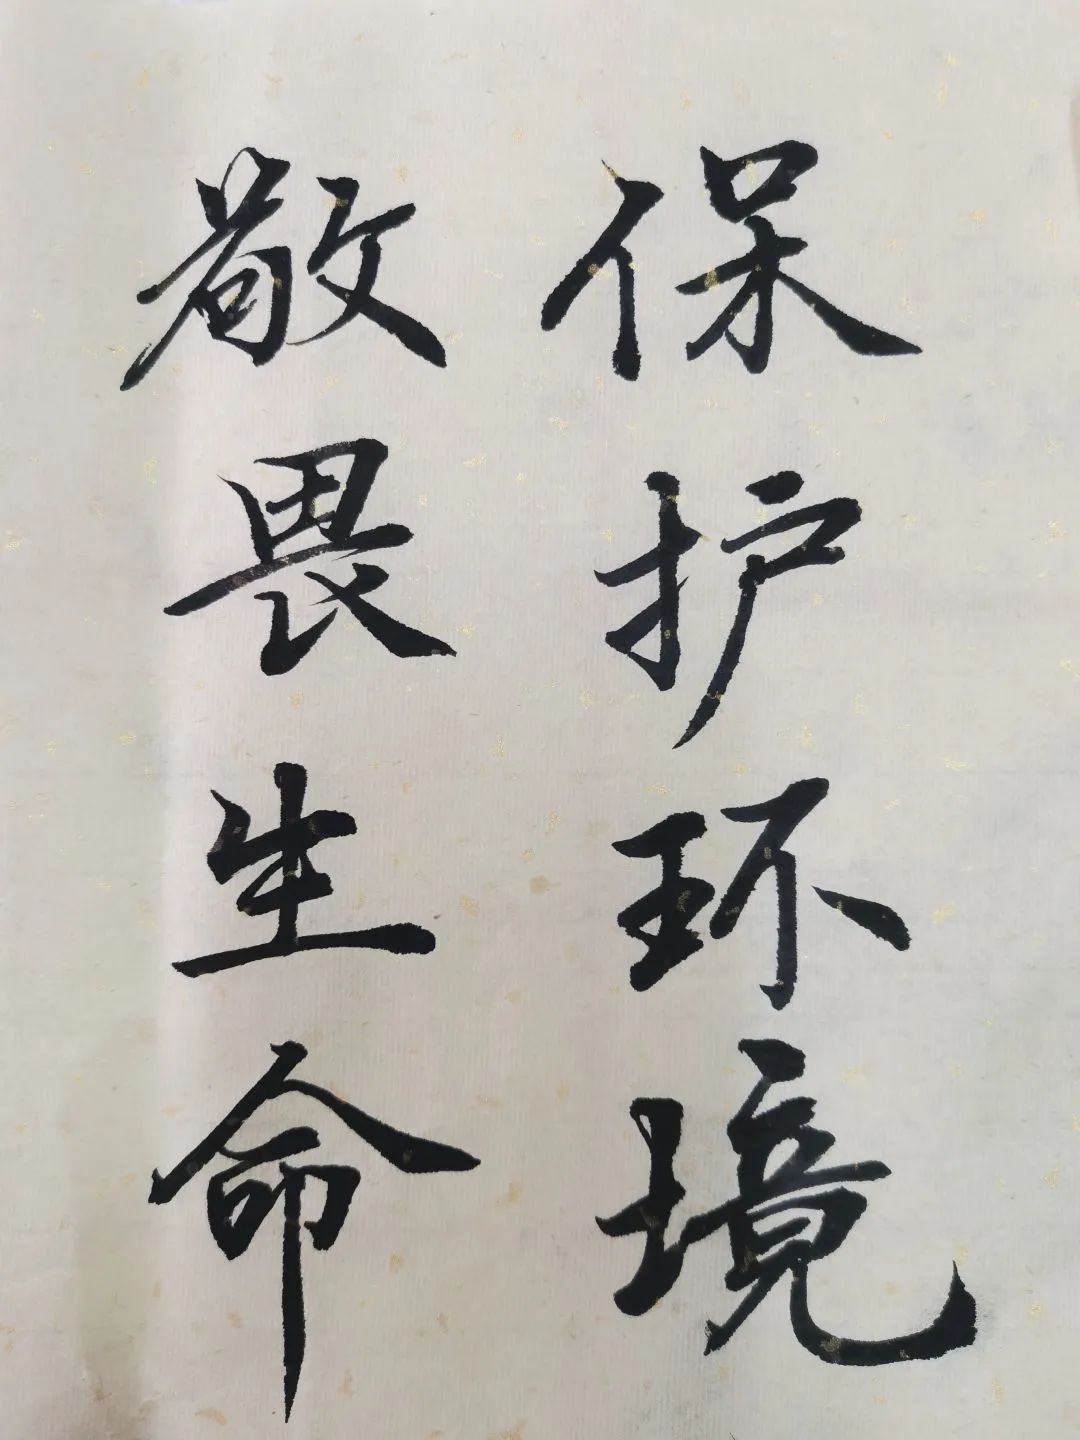 保护环境
敬畏生命